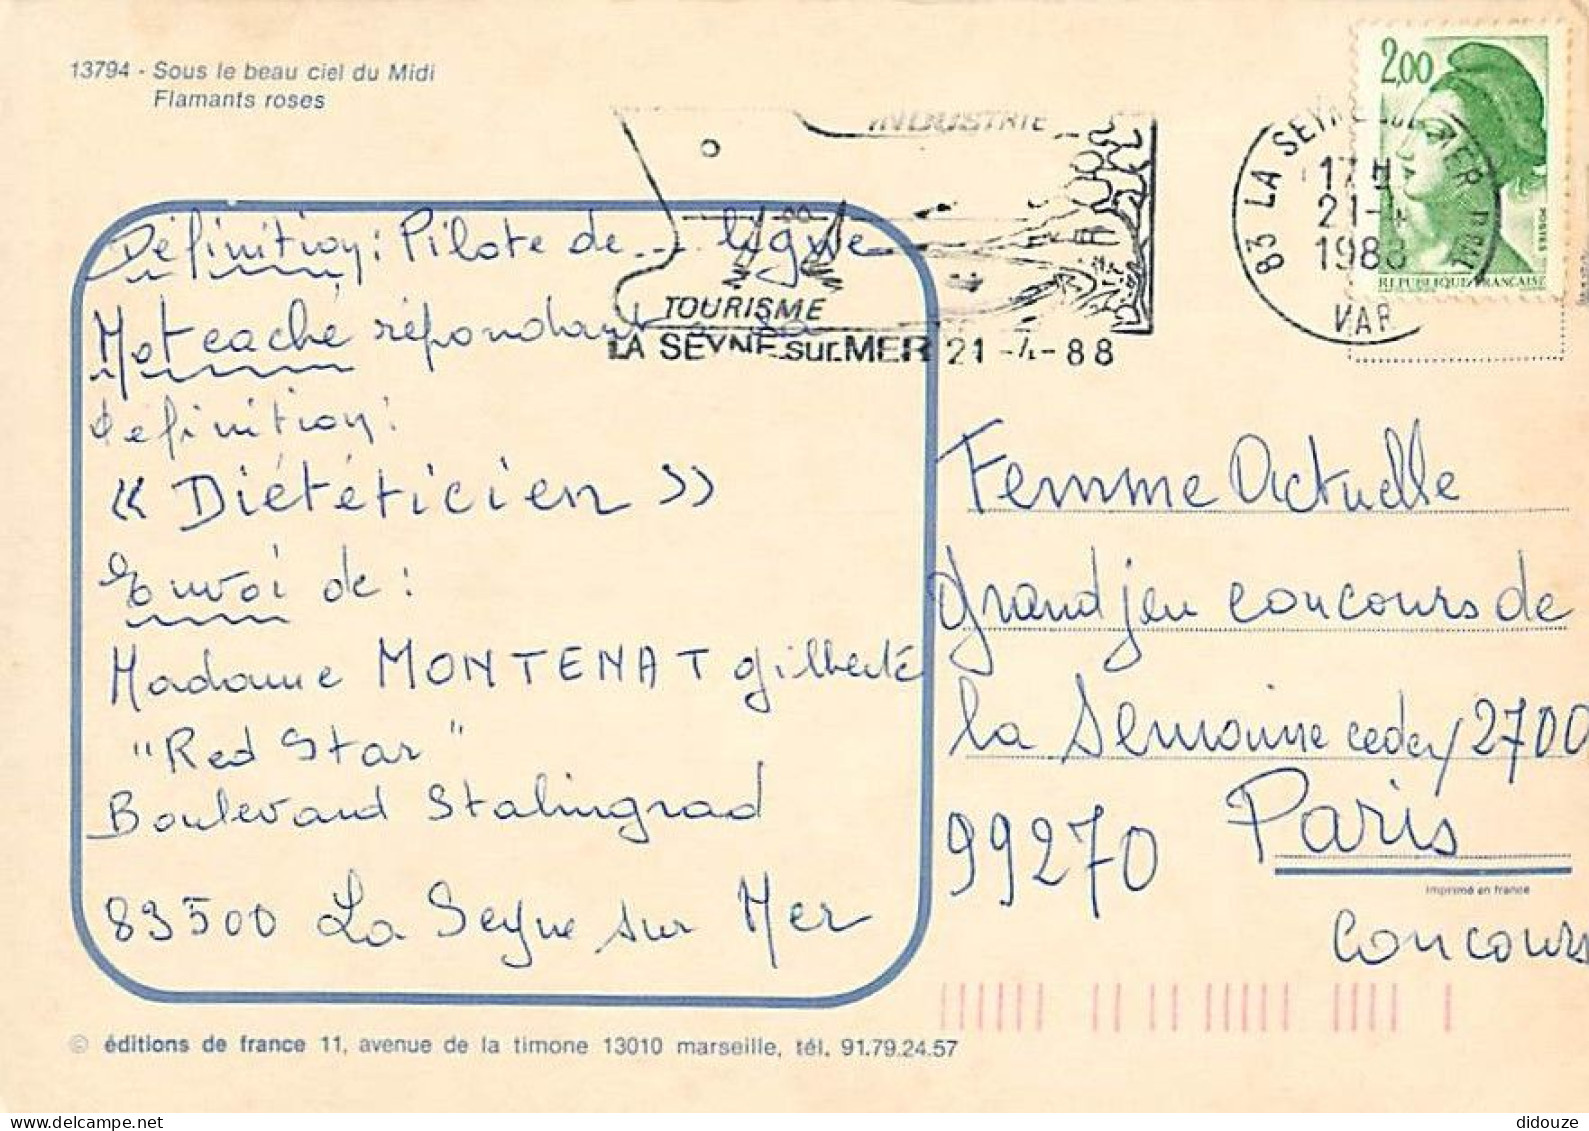 13794 - Sous le beau ciel du Midi
Flamants roses
INDUSTRIE
TOURISME
LA SEYNE sur MER 21-4-88
83 LA SEYNE SUR MER PPAL
17 H
21-4
1988
VAR
2,00
POSTES
REPUBLIQUE FRANÇAISE
Définition: Pilote de... ligne
Mot caché répondant à la
définition:
« Diététicien »
Envoi de:
Madame MONTENAT Gilberte
"Red Star"
Boulevard Stalingrad
83500 La Seyne sur Mer
Femme Actuelle
Grand jeu concours de
la Semaine cedex 2700
99270 Paris
Imprimé en france
Concours
© éditions de france 11, avenue de la timone 13010 marseille, tél. 91.79.24.57
didouze